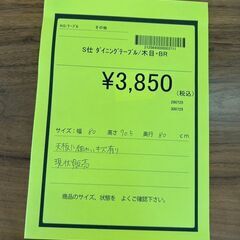 その他
S仕 ダイニングテーブル/木目・BR
¥3,850
(税込)
サイズ:幅 80 高さ 70.5 奥行 80 cm
天板に細かいキズ有り
現状販売
商品のサイズ、状態を よくご確認下さい。